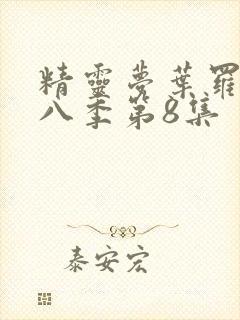 精靈夢葉羅
八季第8集
泰安宏